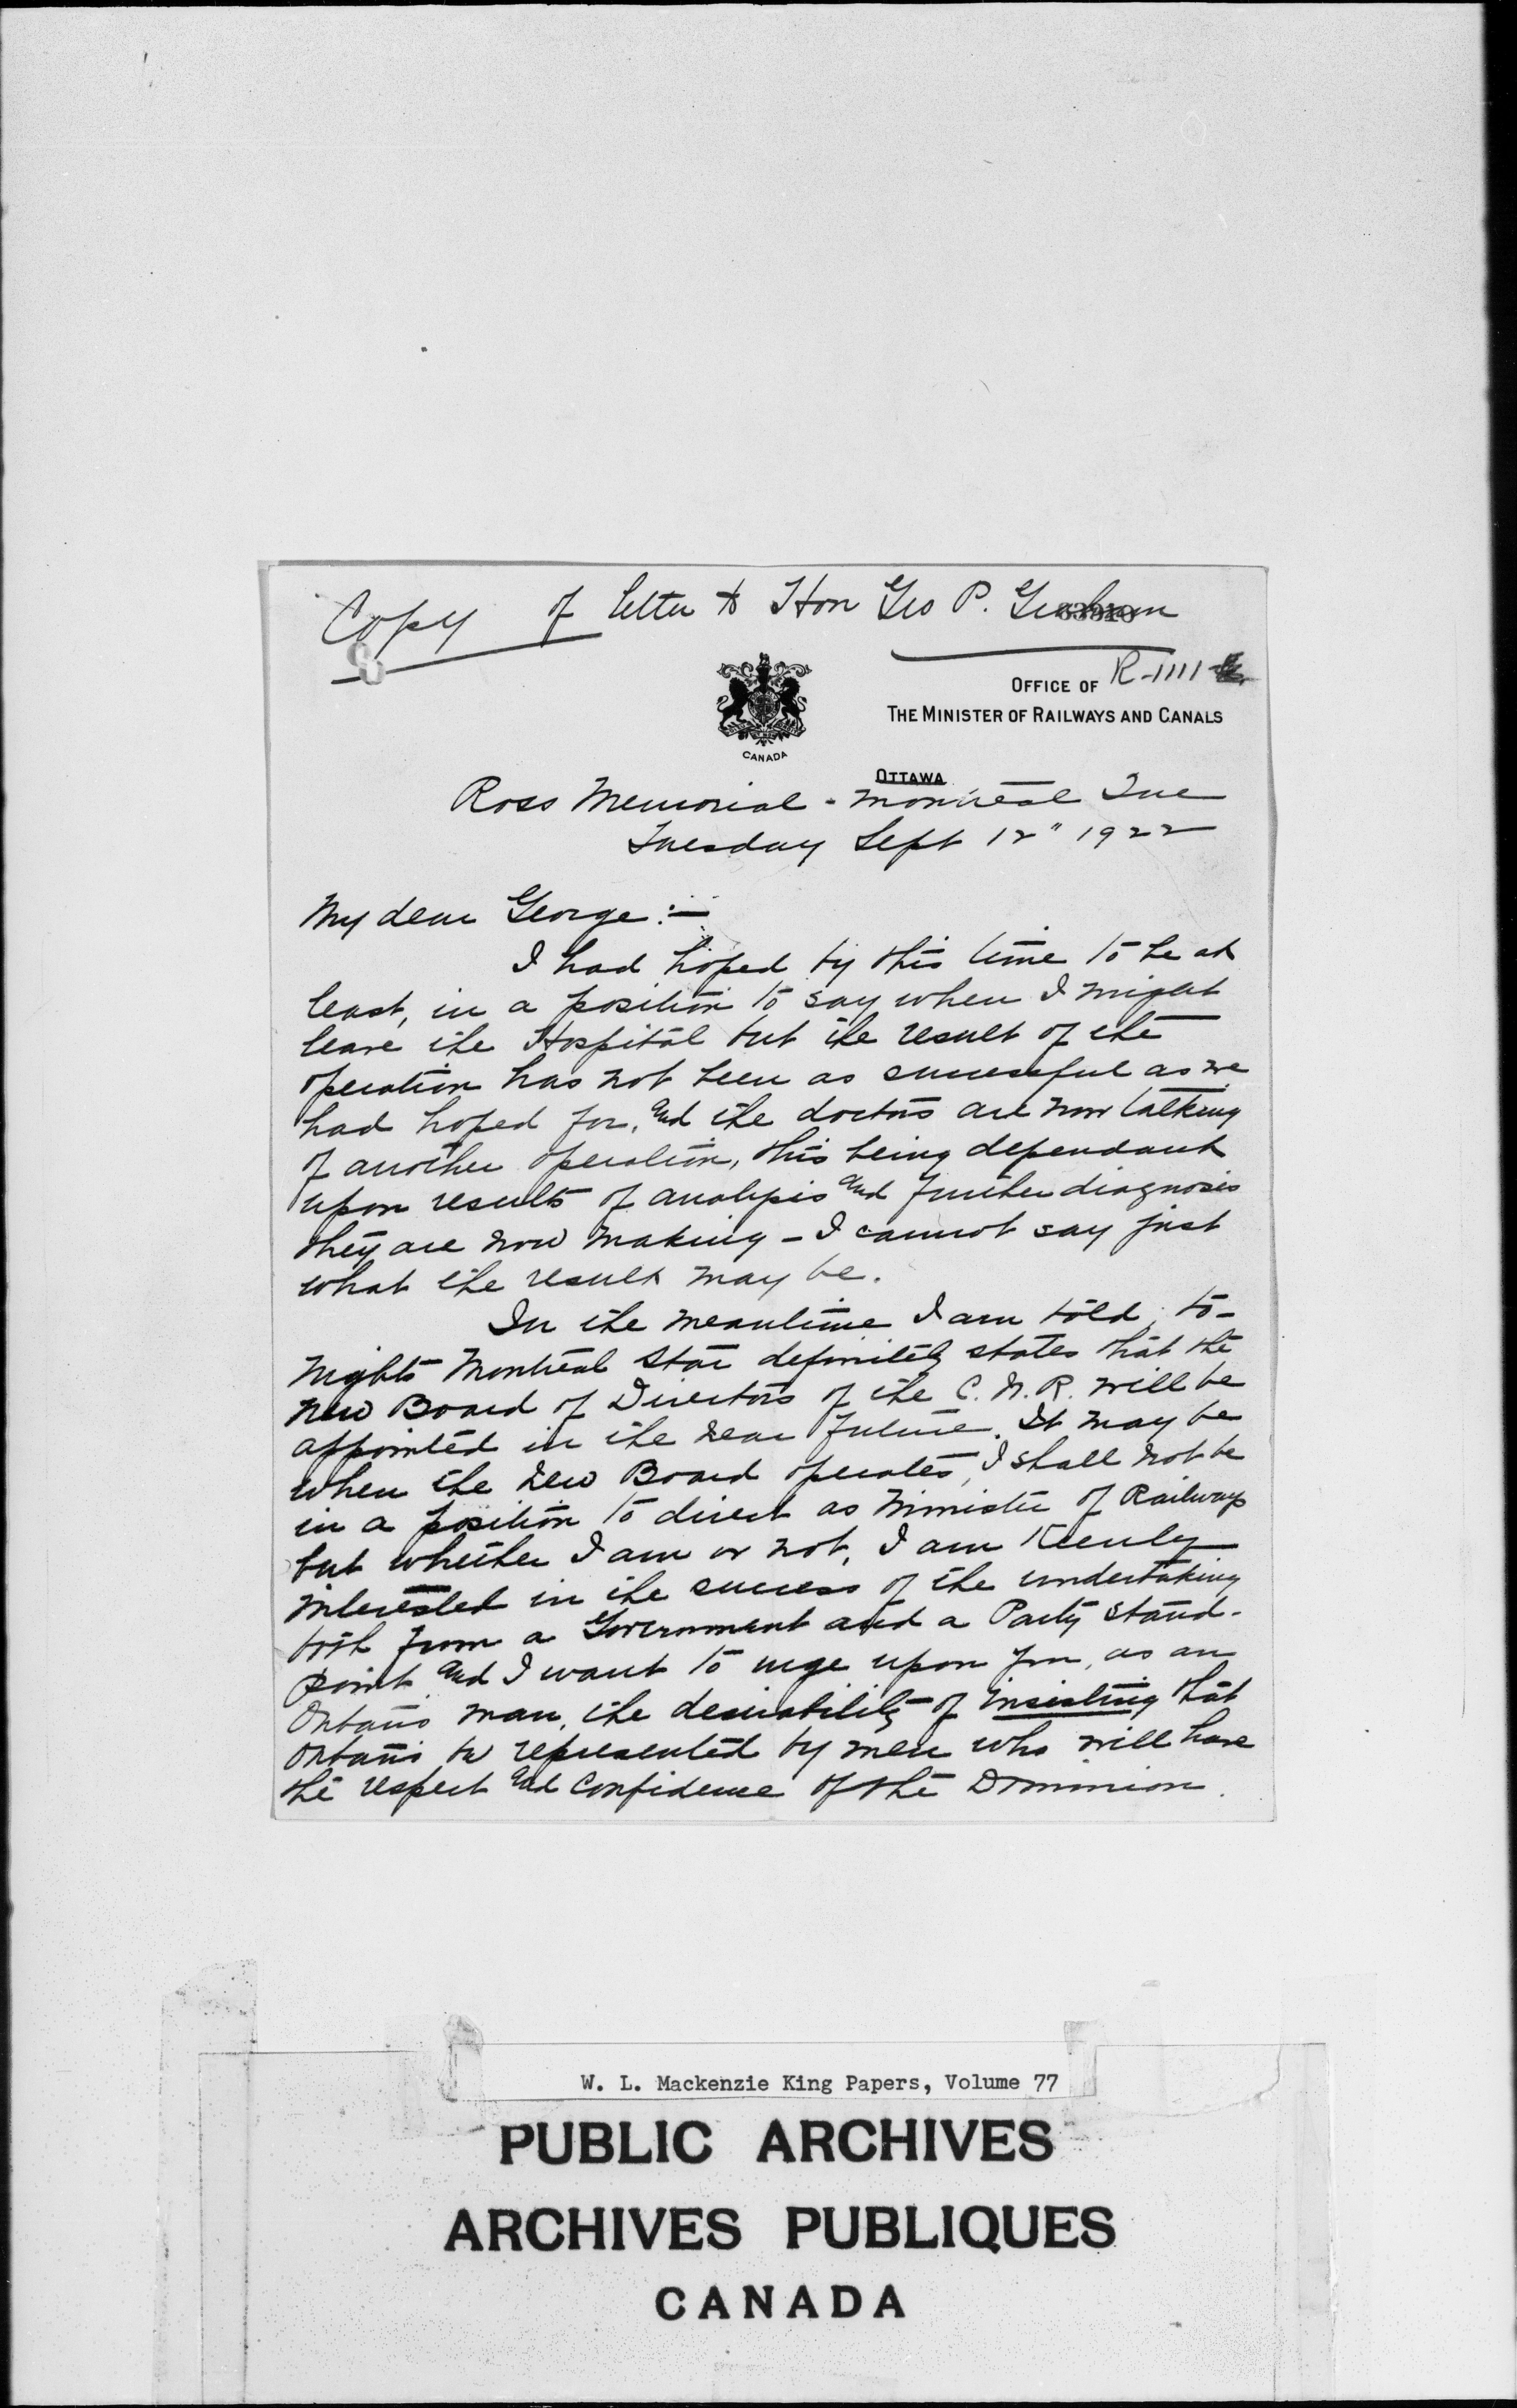 Copy of letter to Hon Geo P. Graham
63910
R-1111
OFFICE OF
THE MINISTER OF RAILWAYS AND CANALS
CANADA
OTTAWA
Ross Memorial - Montreal Que
Tuesday Sept 12" 1922
My dear George:—
I had hoped by this time to be at
least, in a position to say when I might
leave the Hospital but the result of the
operation has not been as successful as we
had hoped for, and the doctors are now talking
of another operation, this being dependant
upon results of analysis and further diagnosis
they are now making - I cannot say just
what the result may be.
In the meantime I am told, to-
nights Montreal Star definitely states that the
new Board of Directors of the C. N. R. will be
appointed in the near future. It may be
when the new Board operates, I shall not be
in a position to direct as Minister of Railways
but whether I am or not, I am keenly
interested in the success of the undertaking
both from a Government and a Party stand-
point and I want to urge upon you, as an
Ontario man, the desirability of insisting that
Ontario be represented by men who will have
the respect and confidence of the Dominion.
W. L. Mackenzie King Papers, Volume 77
PUBLIC ARCHIVES
ARCHIVES PUBLIQUES
CANADA